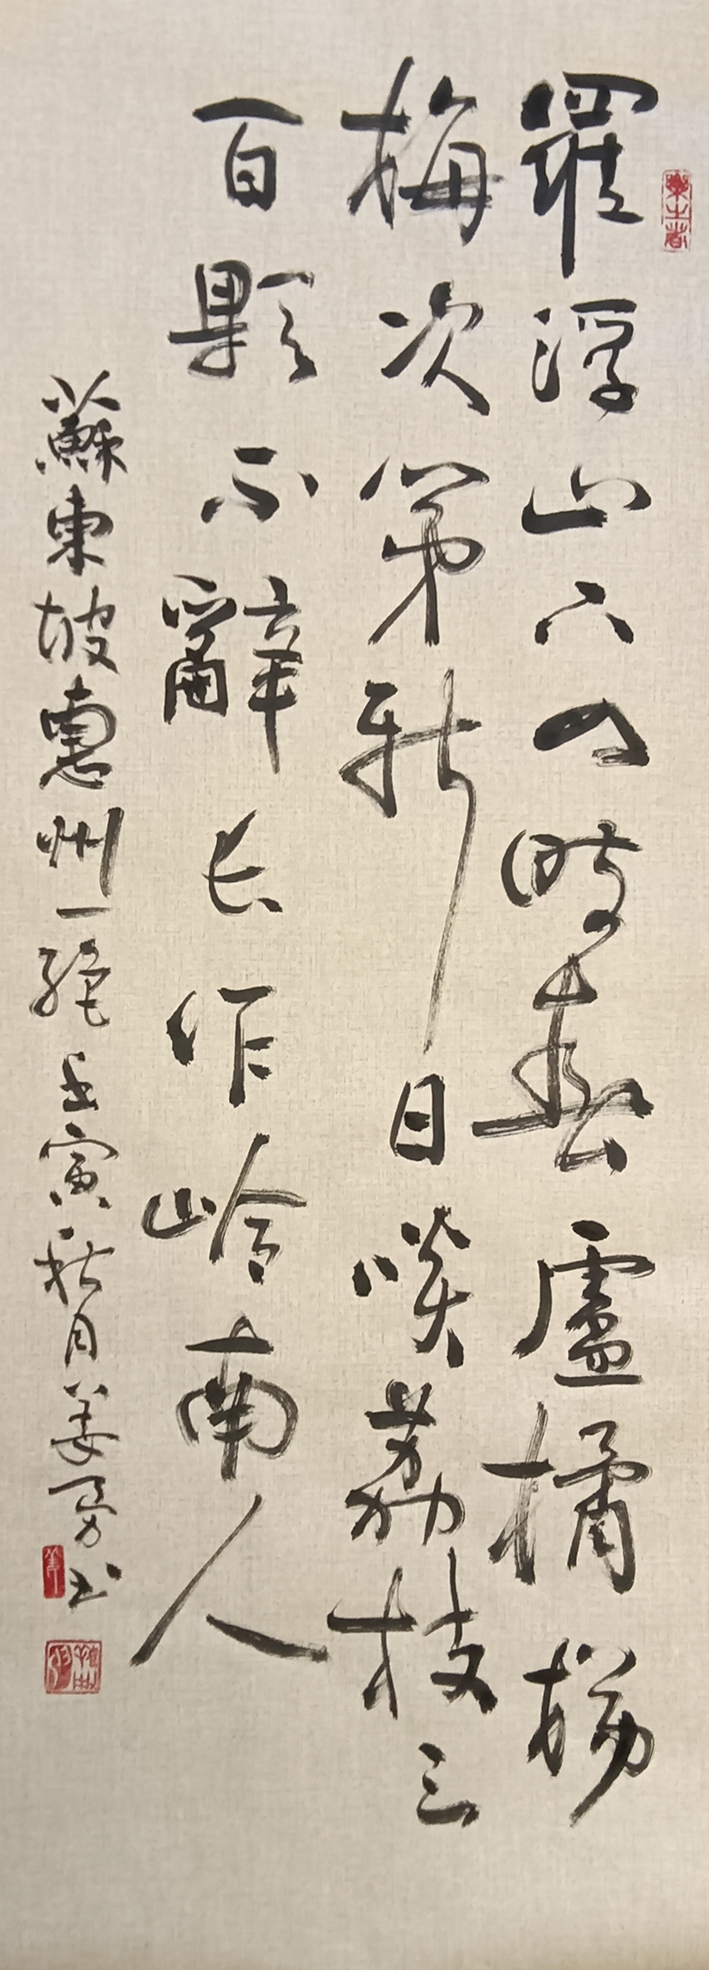 羅浮山下四時春盧橘楊
梅次第新日啖荔枝三
百顆不辭长作岭南人
蘇東坡惠州一絕壬寅秋月姜勇书